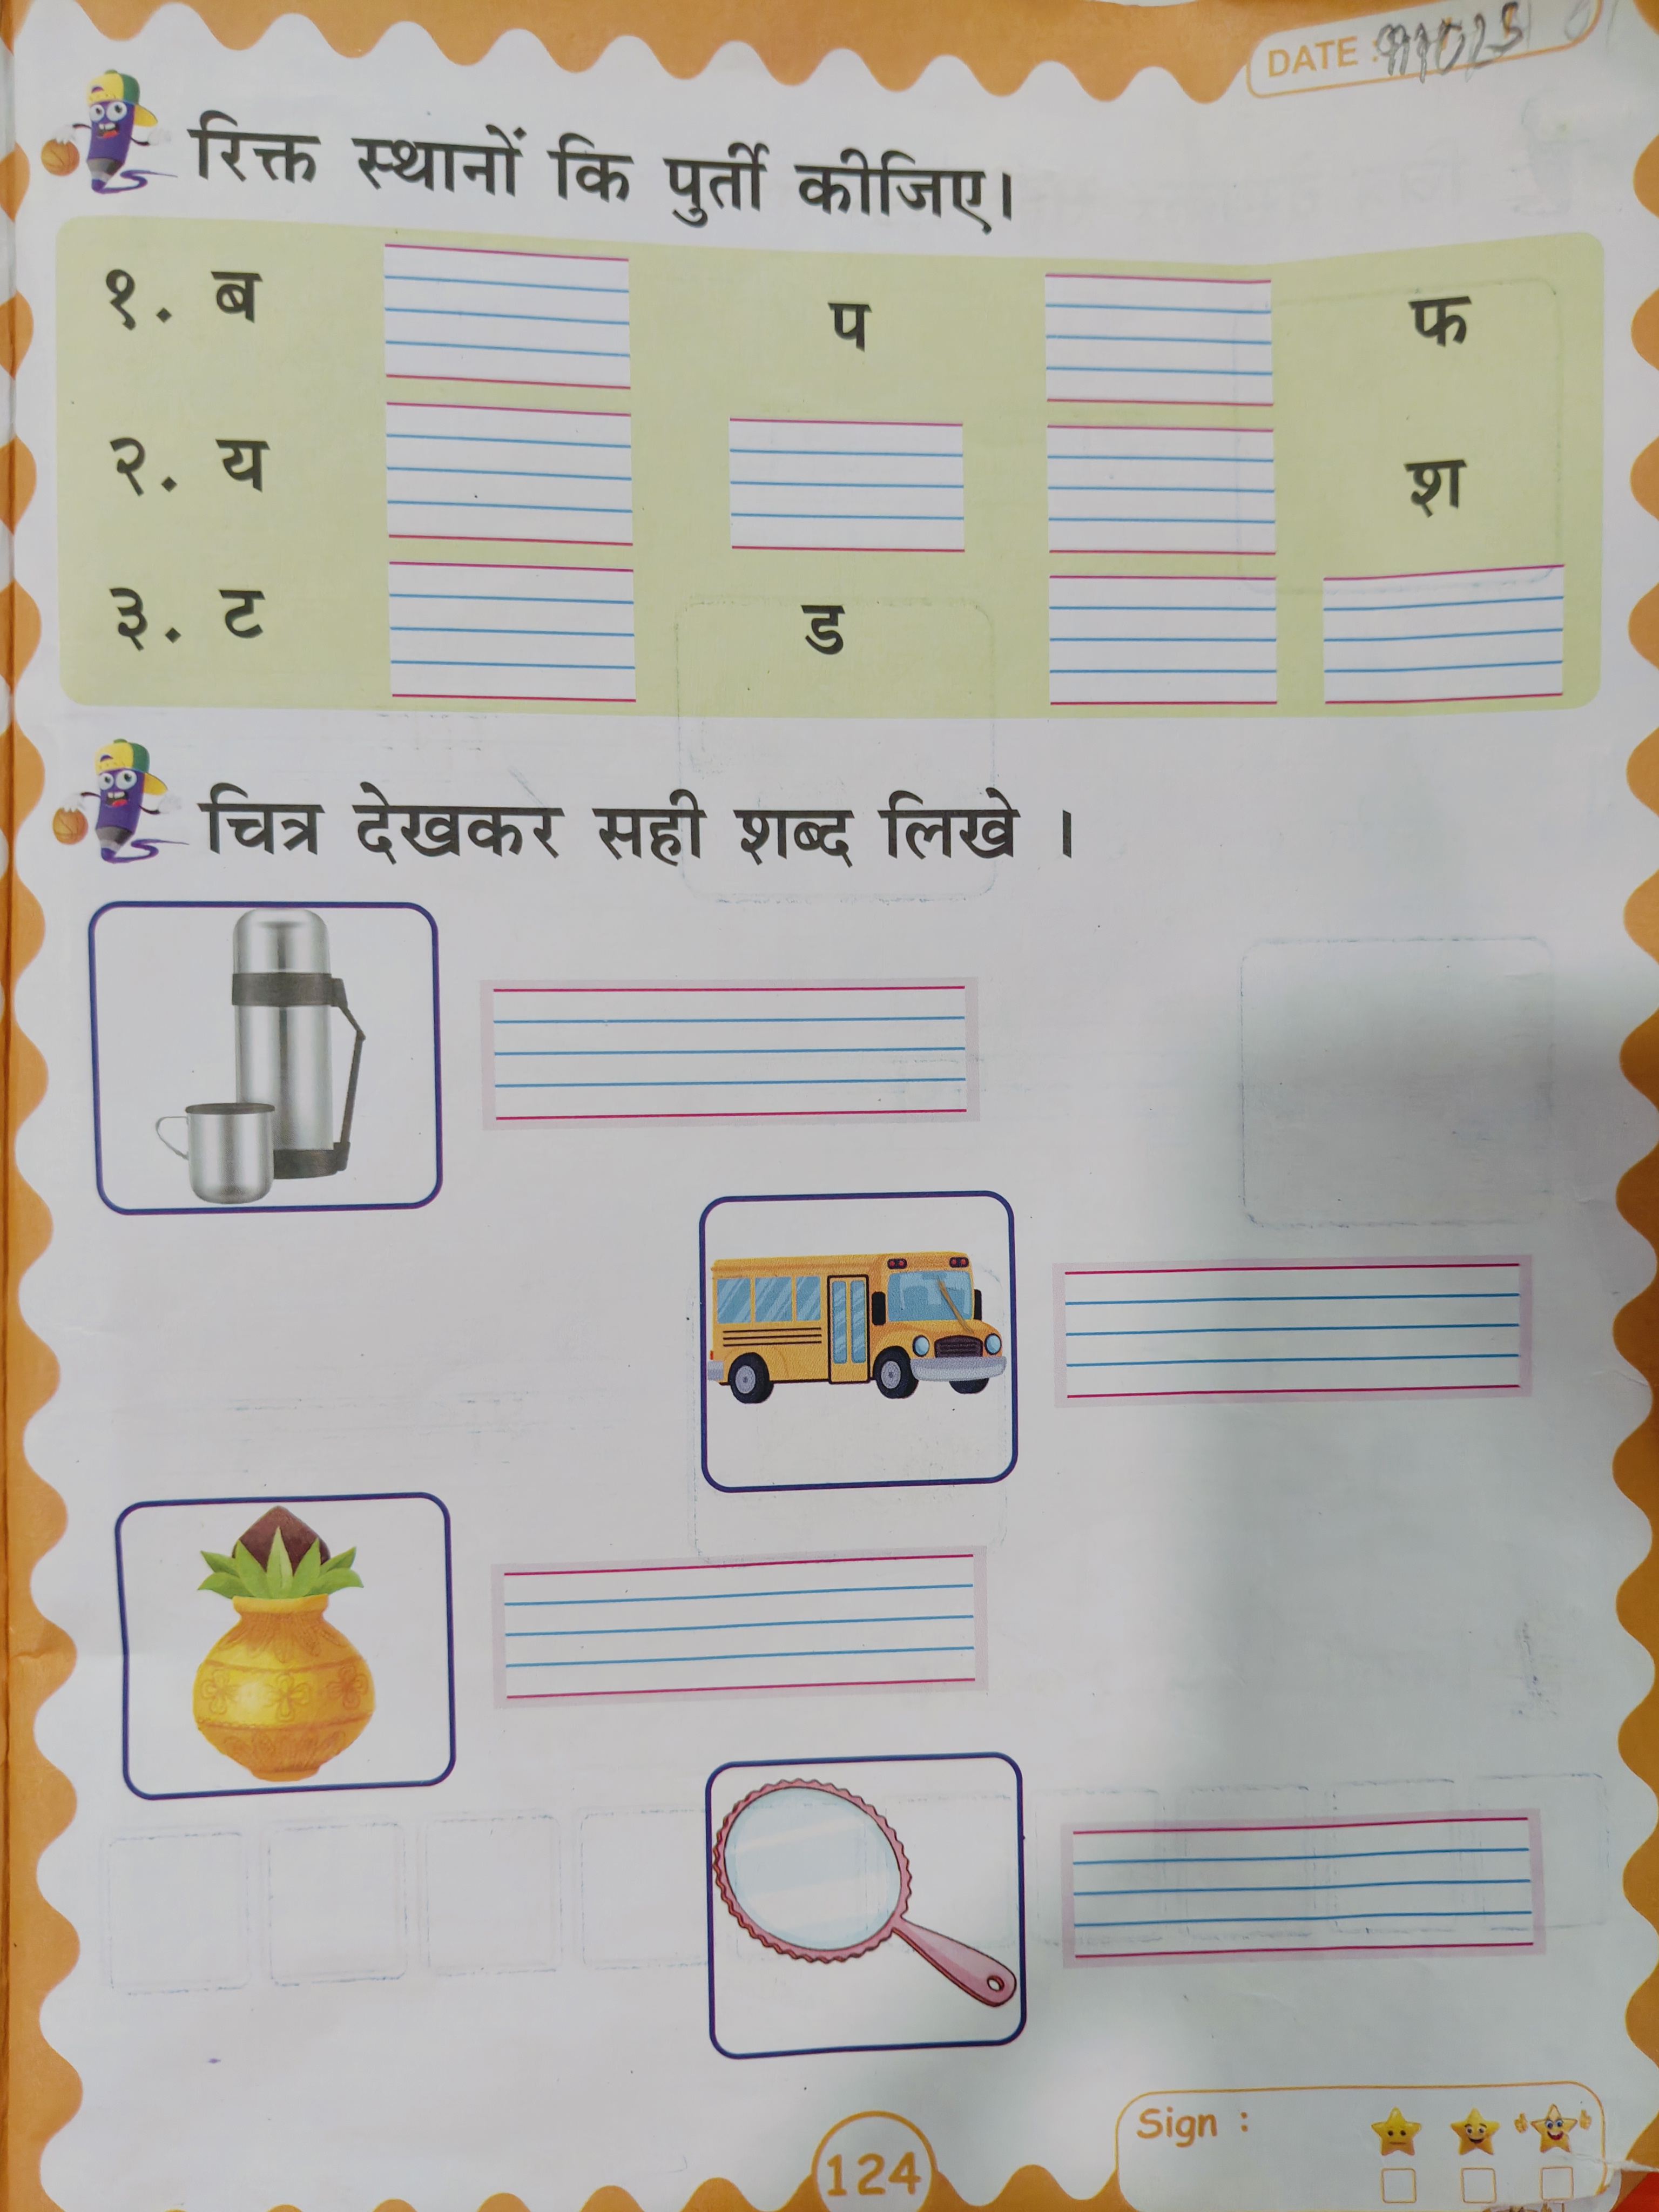 DATE :
रिक्त स्थानों कि पुर्ती कीजिए।
१. ब प फ
२. य श
३. ट ड
चित्र देखकर सही शब्द लिखे ।
Sign :
124